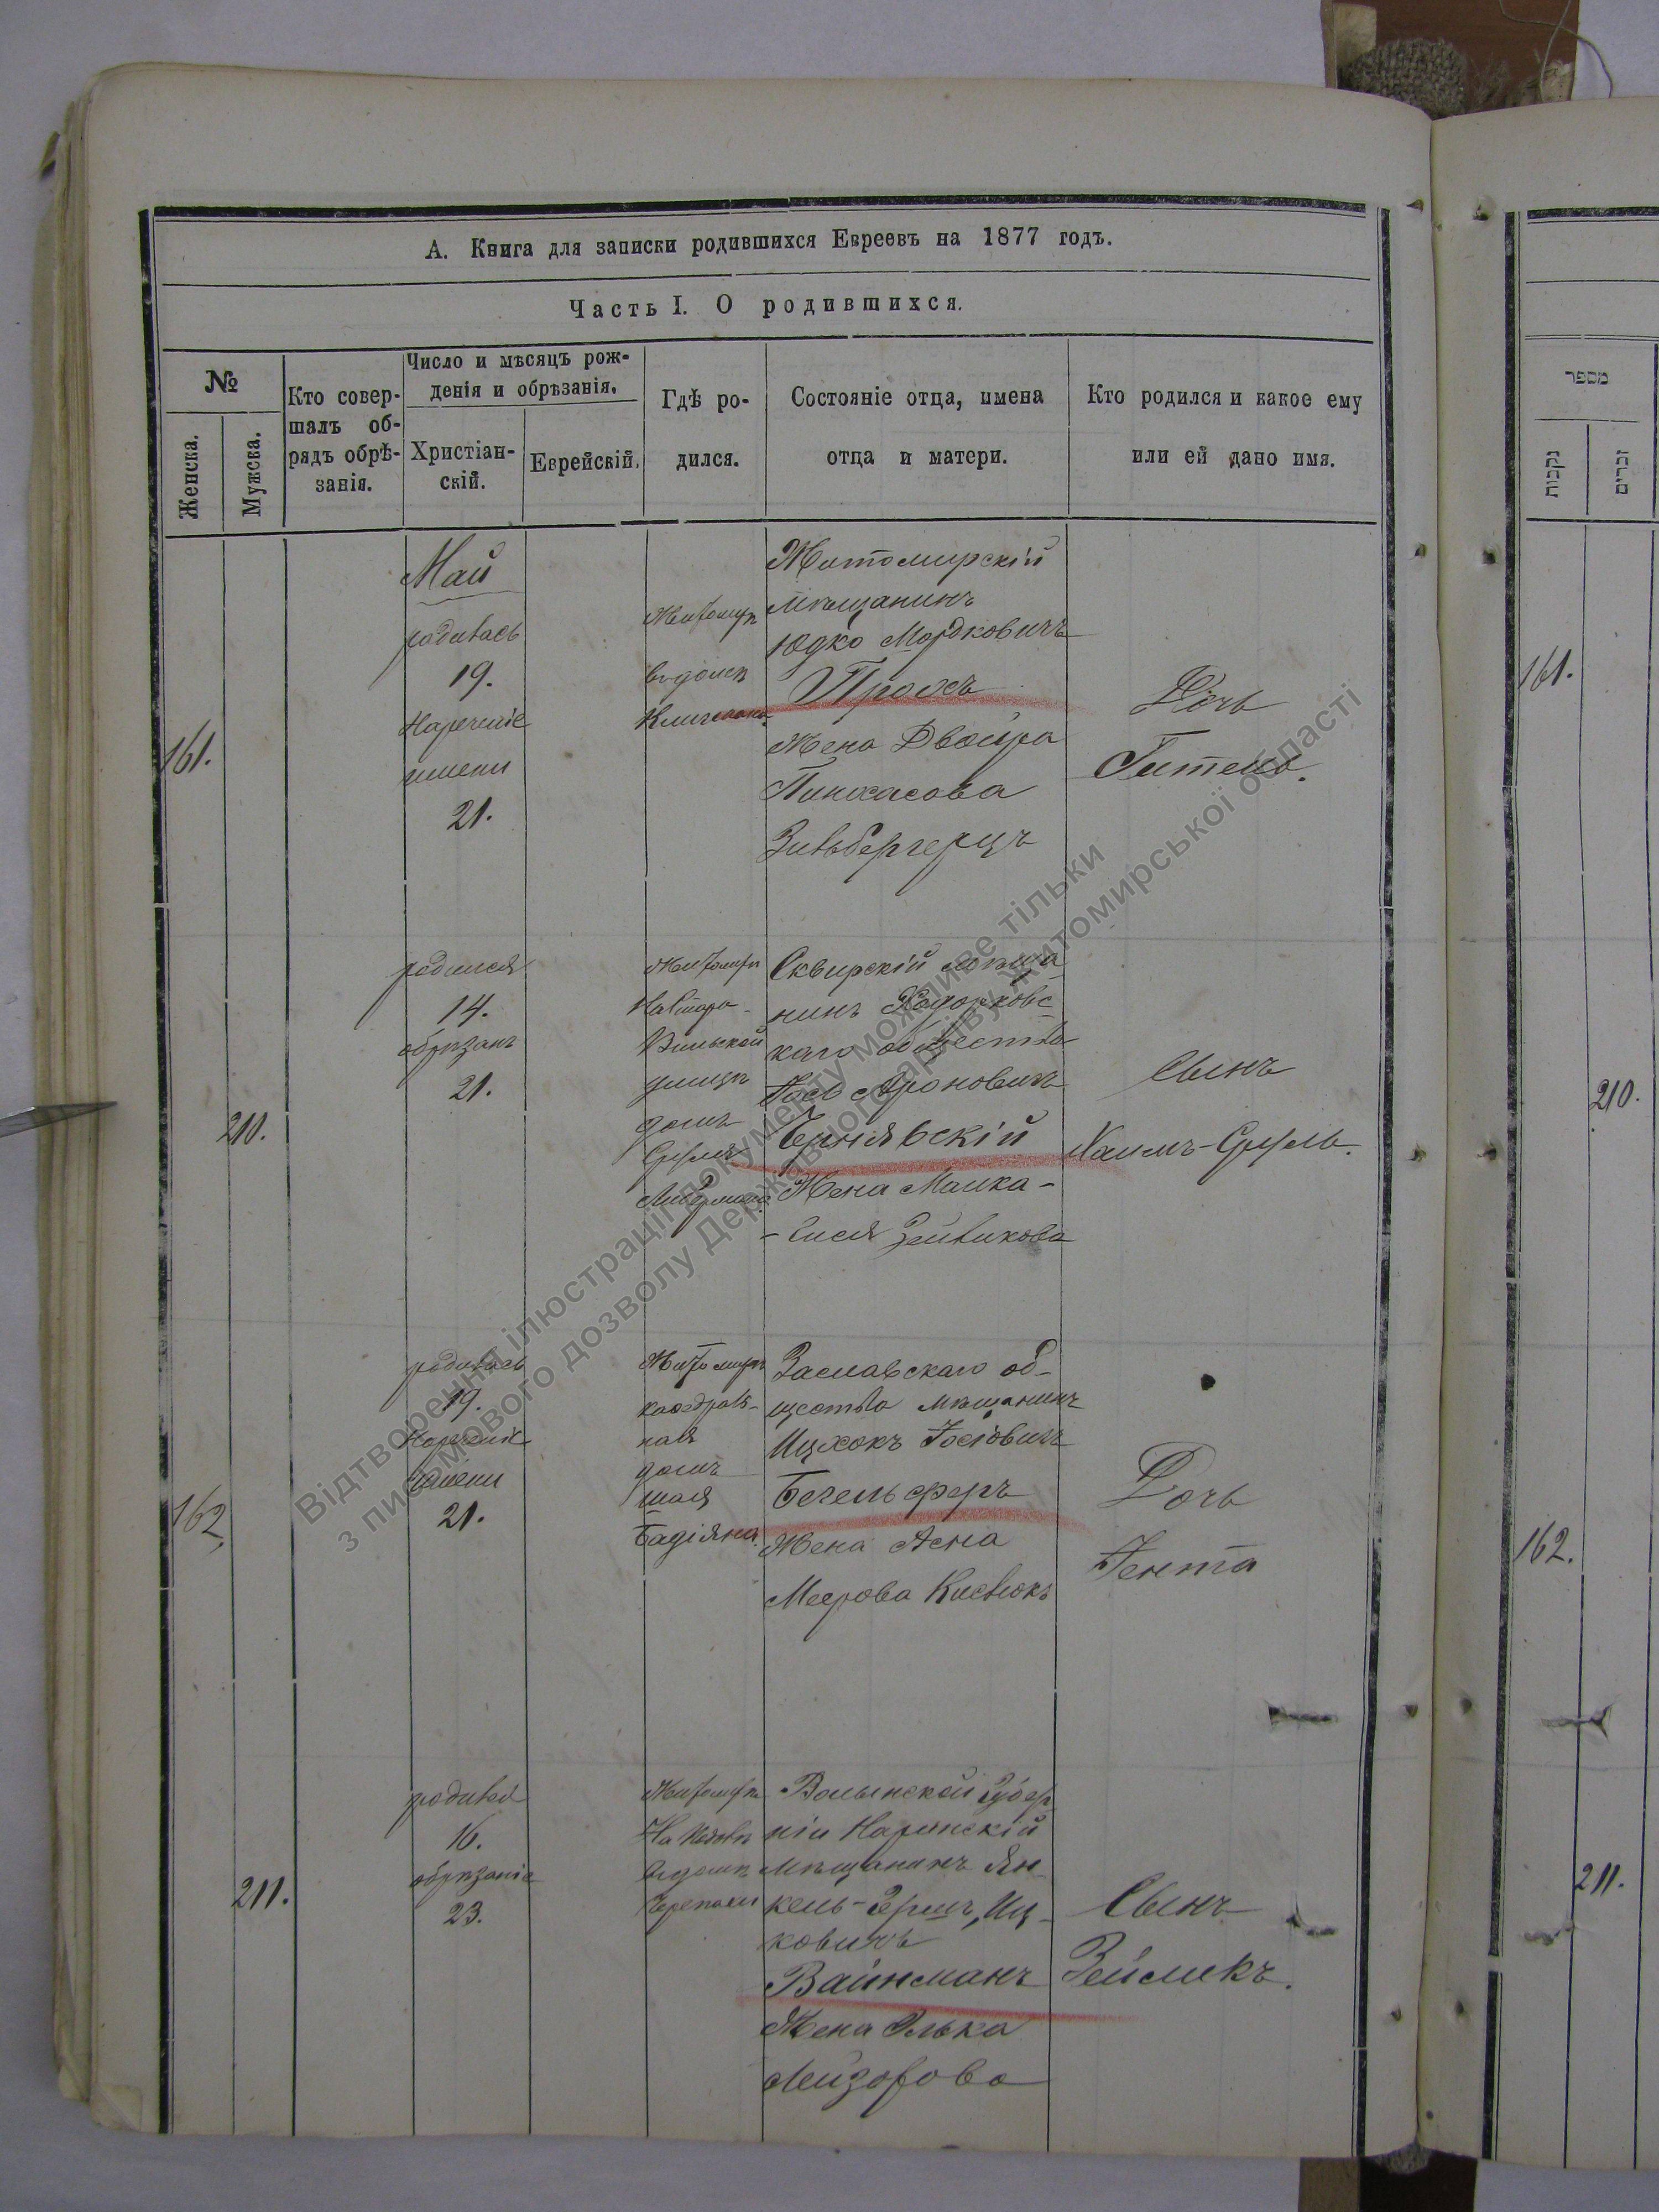 А. Книга для записки родившихся Евреевъ на 1877 годъ.
Часть I. О родившихся.
№
Женска.
Мужска.
Кто совер-
шалъ об-
рядъ обрѣ-
занія.
Число и мѣсяцъ рож-
денія и обрѣзанія.
Христіан-
скій.
Еврейскій.
Гдѣ ро-
дился.
Состояніе отца, имена
отца и матери.
Кто родился и какое ему
или ей дано имя.
161.
Май
родилась
19.
Нареченіе
имени
21.
Житомиръ
въ домѣ
Житомирскій
мѣщанинъ
Юдко Мордковичъ
Прохъ
Жена Двойра
Пинхасова
Зильбергерцъ
Дочь
Гитель.
210.
родился
14.
обрѣзанъ
21.
Житомиръ
На Старо-
Вильской
улицѣ
домъ
Сруля
Либермана.
Сквирскій мѣща
нинъ Ходорковс
каго общества
Іось Ароновичъ
Чернявскій
Жена Малка-
-Еися Зейликова
Сынъ
Хаимъ-Сруль.
162.
родилась
19.
Нареченіе
имени
21.
Житомиръ
каѳедраль-
ная
домъ
Шая
Бадіяна.
Заславскаго об-
щества мѣщанинъ
Ицхокъ Іосіовичъ
Бегельферъ
Жена Асна
Меерова Киевлюкъ
Дочь
Іента
211.
родился
16.
обрѣзаніе
23.
Житомиръ
въ домѣ
Черепахи
Волынской Губер
ніи
Мѣщанинъ Ян-
кель-Гершъ, Иц-
ковичъ
Вайнманъ
Жена Элька
Лейзорова
Сынъ
Зейликъ.
מספר
נקבות
זכרים
161.
210.
162.
211.
Відтворення ілюстрації документу можливе тільки
з письмового дозволу Державного архіву Житомирської області